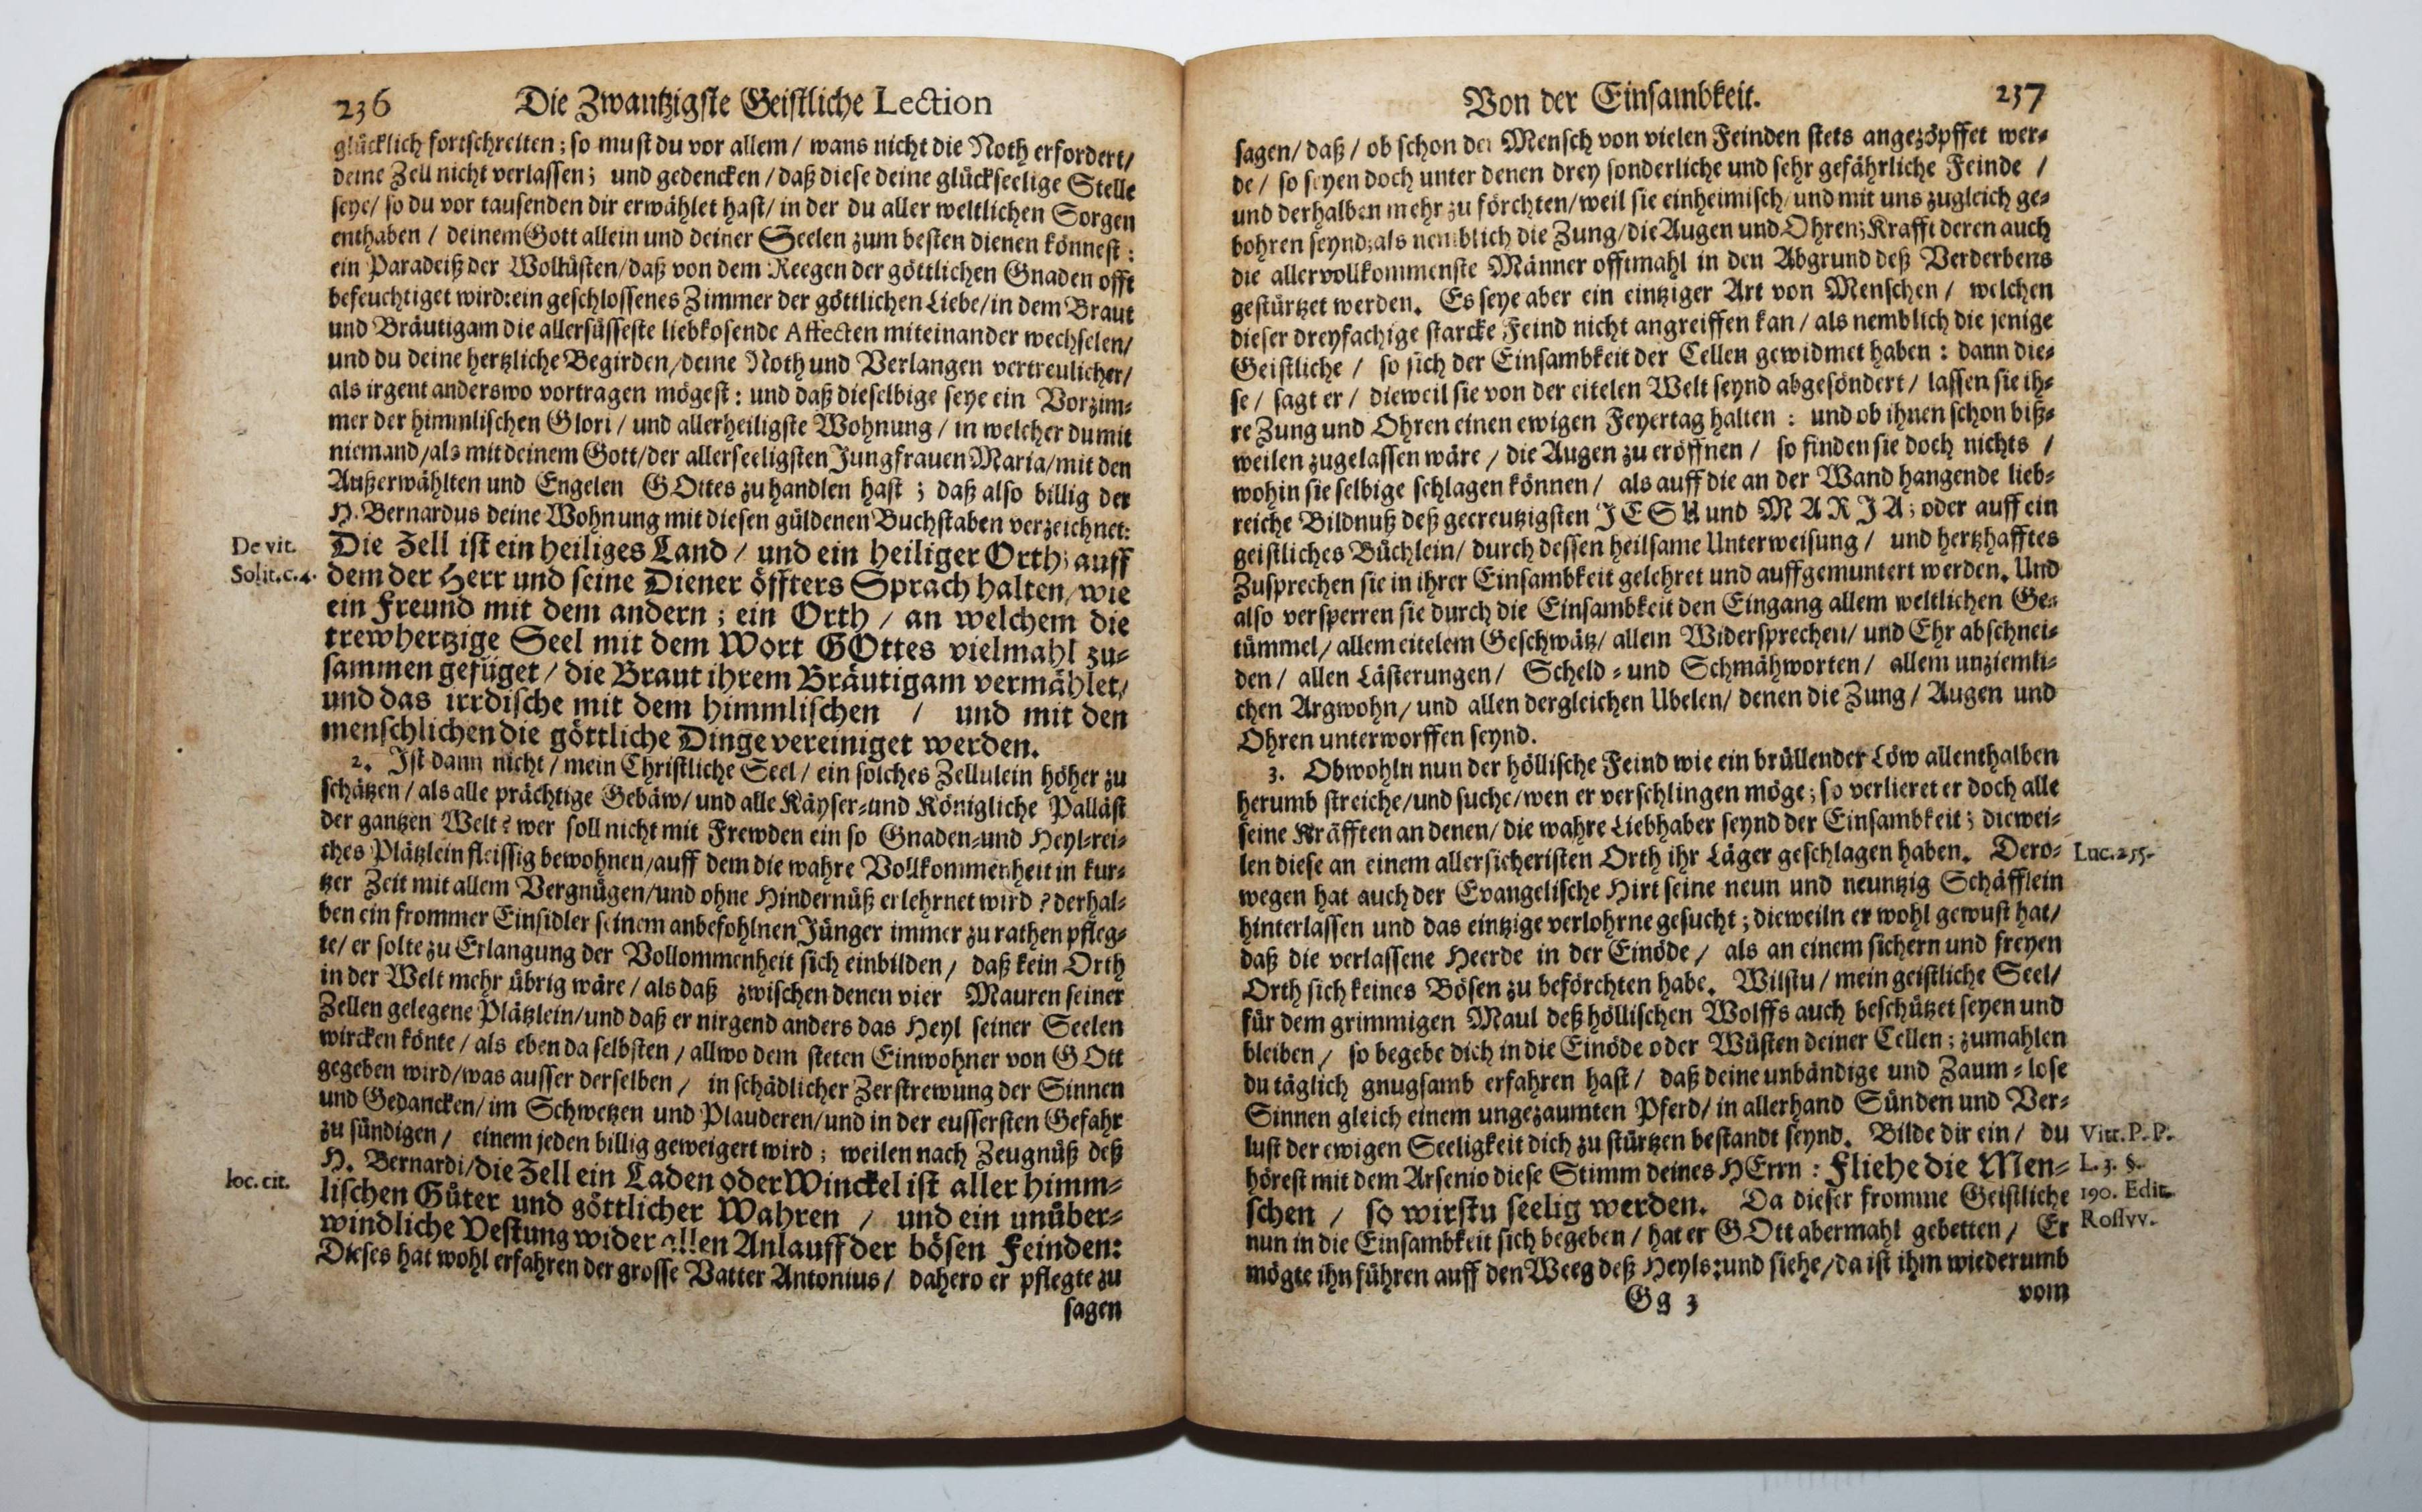 236 Die Zwantzigste Geistliche Lection
glücklich fortschreiten; so must du vor allem / wans nicht die Noth erfordert/
deine Zell nicht verlassen; und gedencken / daß diese deine glückseelige Stelle
seye/ so du vor tausenden dir erwählet hast/ in der du aller weltlichen Sorgen
enthaben / deinem Gott allein und deiner Seelen zum besten dienen könnest:
ein Paradeiß der Wollüsten/daß von dem Reegen der göttlichen Gnaden offt
befeuchtiget wird: ein geschlossenes Zimmer der göttlichen Liebe/in dem Braut
und Bräutigam die allersüsseste liebkosende Affecten miteinander wechselen/
und du deine hertzliche Begirden/deine Noth und Verlangen vertreulicher/
als irgent anderswo vortragen mögest: und daß dieselbige seye ein Vorzim-
mer der himmlischen Glori / und allerheiligste Wohnung / in welcher du mit
niemand/als mit deinem Gott/der allerseeligsten Jungfrauen Maria/mit den
Außerwählten und Engelen GOttes zu handlen hast; daß also billig der
H. Bernardus deine Wohnung mit diesen güldenen Buchstaben verzeichnet:
De vit. Solit. c. 4.
Die Zell ist ein heiliges Land / und ein heiliger Orth; auff
dem der Herr und seine Diener öffters Sprach halten/ wie
ein Freund mit dem andern; ein Orth / an welchem die
trewhertzige Seel mit dem Wort GOttes vielmahl zu-
sammen gefüget / die Braut ihrem Bräutigam vermählet/
und das irrdische mit dem himmlischen / und mit den
menschlichen die göttliche Dinge vereiniget werden.
2. Ist dann nicht / mein Christliche Seel / ein solches Zellulein höher zu
schätzen / als alle prächtige Gebäw/ und alle Käyser-und Königliche Palläst
der gantzen Welt? wer soll nicht mit Frewden ein so Gnaden-und Heyl-rei-
ches Plätzlein fleissig bewohnen/auff dem die wahre Vollkommenheit in kur-
tzer Zeit mit allem Vergnügen/und ohne Hindernüß erlehrnet wird? derhal-
ben ein frommer Einsidler seinem anbefohlnen Jünger immer zu rathen pfleg-
te/ er solte zu Erlangung der Vollommenheit sich einbilden / daß kein Orth
in der Welt mehr übrig wäre / als daß zwischen denen vier Mauren seiner
Zellen gelegene Plätzlein/und daß er nirgend anders das Heyl seiner Seelen
wircken könte / als eben da selbsten / allwo dem steten Einwohner von GOtt
gegeben wird/was ausser derselben / in schädlicher Zerstrewung der Sinnen
und Gedancken/ im Schwetzen und Plauderen/und in der eussersten Gefahr
zu sündigen / einem jeden billig geweigert wird; weilen nach Zeugnüß deß
H. Bernardi/die Zell ein Laden oder Winckel ist aller himm-
loc. cit.
lischen Güter und göttlicher Wahren / und ein unüber-
windliche Vestung wider allen Anlauff der bösen Feinden:
Dieses hat wohl erfahren der grosse Vatter Antonius / dahero er pflegte zu
sagen
Von der Einsambkeit. 237
sagen/ daß / ob schon der Mensch von vielen Feinden stets angezöpffet wer-
de / so seyen doch unter denen drey sonderliche und sehr gefährliche Feinde /
und derhalben mehr zu förchten/weil sie einheimisch/und mit uns zugleich ge-
bohren seynd; als nemblich die Zung/die Augen und Ohren; Krafft deren auch
die allervollkommenste Männer offtmahl in den Abgrund deß Verderbens
gestürtzet werden. Es seye aber ein eintziger Art von Menschen / welchen
dieser dreyfachige starcke Feind nicht angreiffen kan / als nemblich die jenige
Geistliche / so sich der Einsambkeit der Cellen gewidmet haben: dann die-
se / sagt er / dieweil sie von der eitelen Welt seynd abgesöndert / lassen sie ih-
re Zung und Ohren einen ewigen Feyertag halten: und ob ihnen schon biß-
weilen zugelassen wäre / die Augen zu eröffnen / so finden sie doch nichts /
wohin sie selbige schlagen können / als auff die an der Wand hangende lieb-
reiche Bildnuß deß gecreutzigsten JESU und MARJA; oder auff ein
geistliches Büchlein/ durch dessen heilsame Unterweisung / und hertzhafftes
Zusprechen sie in ihrer Einsambkeit gelehret und auffgemuntert werden. Und
also versperren sie durch die Einsambkeit den Eingang allem weltlichen Ge-
tümmel/ allem eitelem Geschwätz/ allem Widersprechen/ und Ehr abschnei-
den / allen Lästerungen / Scheld-und Schmähworten / allem unziemli-
chen Argwohn/ und allen dergleichen Ubelen/ denen die Zung / Augen und
Ohren unterworffen seynd.
3. Obwohln nun der höllische Feind wie ein brüllender Löw allenthalben
herumb streiche/und suche/wen er verschlingen möge; so verlieret er doch alle
seine Kräfften an denen/ die wahre Liebhaber seynd der Einsambkeit; diewei-
len diese an einem allersicheristen Orth ihr Läger geschlagen haben. Dero-
Luc. 2 55.
wegen hat auch der Evangelische Hirt seine neun und neuntzig Schäfflein
hinterlassen und das eintzige verlohrne gesucht; dieweiln er wohl gewust hat/
daß die verlassene Heerde in der Einöde / als an einem sichern und freyen
Orth sich keines Bösen zu beförchten habe. Wilstu / mein geistliche Seel/
für dem grimmigen Maul deß höllischen Wolffs auch beschützet seyen und
bleiben / so begebe dich in die Einöde oder Wüsten deiner Cellen; zumahlen
du täglich gnugsamb erfahren hast / daß deine unbändige und Zaum-lose
Sinnen gleich einem ungezaumten Pferd/ in allerhand Sünden und Ver-
lust der ewigen Seeligkeit dich zu stürtzen bestandt seynd. Bilde dir ein / du
hörest mit dem Arsenio diese Stimm deines HErrn: Fliehe die Men-
schen / so wirstu seelig werden. Da dieser fromme Geistliche
Vitt. P. P.
L. 3. §.
190. Edit.
Rosvv.
nun in die Einsambkeit sich begeben / hat er GOtt abermahl gebetten / Er
mögte ihn führen auff den Weeg deß Heyls: und siehe/da ist ihm wiederumb
Gg 3 vom